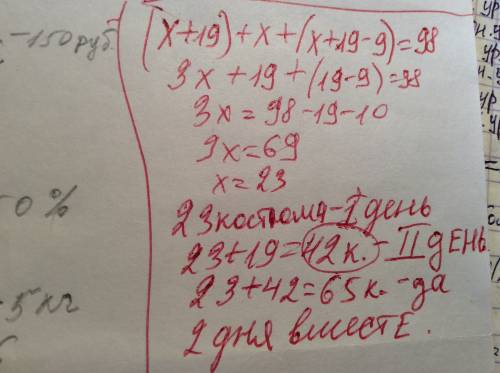 -150 руб.
(x+19)+x+(x+19-9)=98
3x+19+(19-9)=98
3x=98-19-10
3x=69
x=23
0%
23 костюма-I день
23+19=42к.-II день.
23+42=65к.-за
5 кг
2 дня вместе.